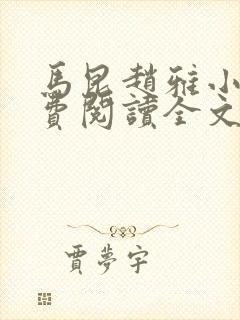 馬昆趙雅小
費閱讀全文
賈夢宇